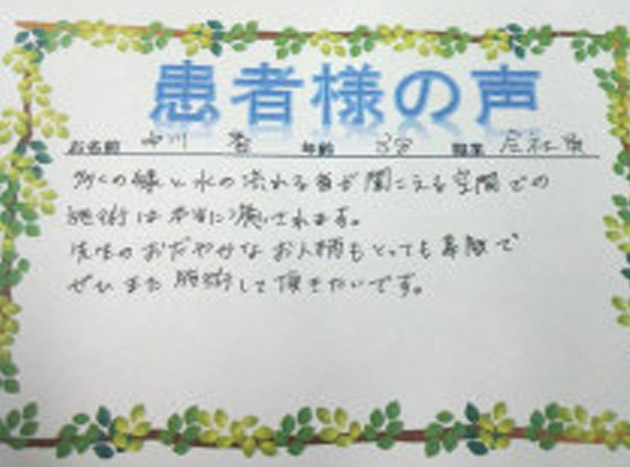 患者様の声
お名前 中川 香 年齢 38 職業 会社員
多くの緑と水の流れる音が聞こえる空間での
施術は本当に癒されます。
先生のおだやかなお人柄もとっても素敵で
ぜひまた施術して頂きたいです。